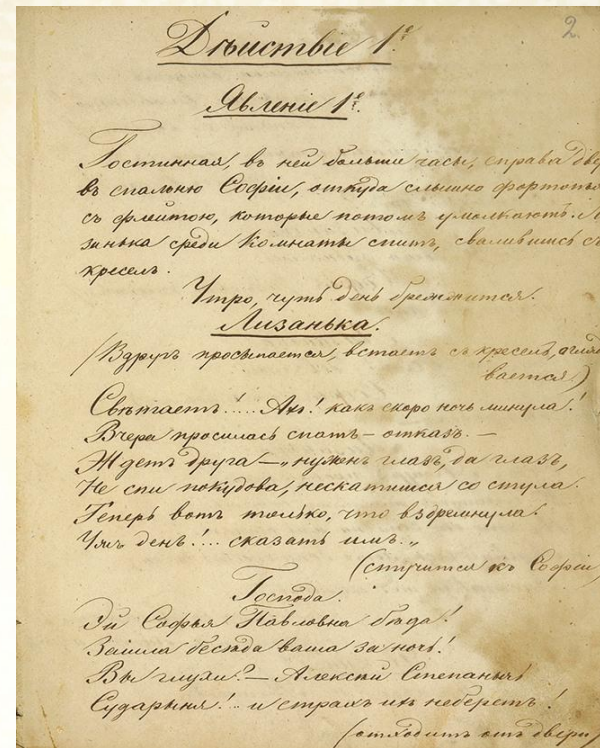 2.
Дѣйствіе 1е.
Явленіе 1е.
Гостинная, въ ней большіе часы, справа две
въ спальню Софіи, откуда слышно фортопь
съ флейтою, которые потомъ умолкаютъ. Л
занька среди комнаты спитъ, свалившись съ
креселъ.
Утро, чуть день брежжится.
Лизанька.
(Вдругъ просыпается, встаетъ съ креселъ, огля
вается)
Свѣтаетъ!.... Ахъ! какъ скоро ночь минула!
Вчера просилась спать – отказъ. –
Ждетъ друга – „нуженъ глазъ, да глазъ,
Не спи покудова, нескатишься со стула.
Теперь вотъ только, что вздремнула.
Ужъ день!... сказать имъ. „
(стучится къ Софіи)
Господа.
Эй Софья Павловна бѣда!
Зашла бесѣда ваша за ночь!
Вы глухи? – Алексѣй Степанычь!
Сударыня!.. и страхъ ихъ неберетъ!
(отходитъ отъ двери)